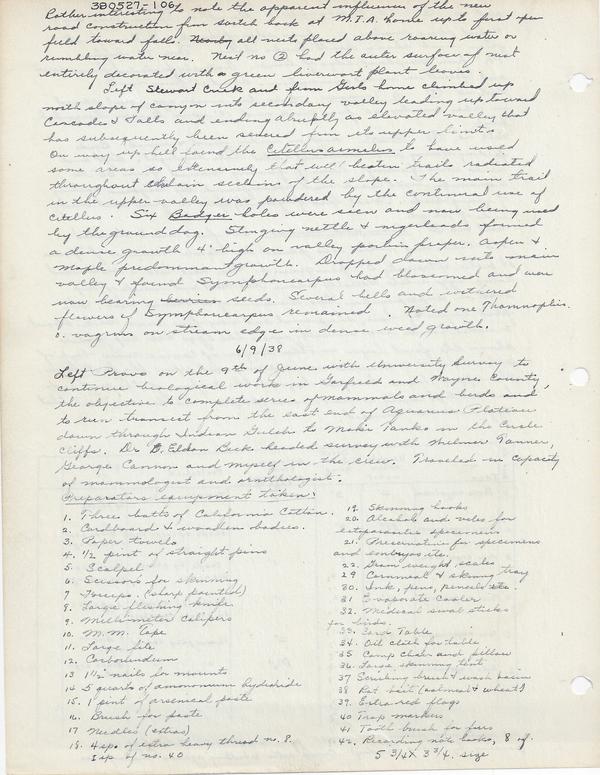 380527-106
Rather interesting to note the apparent influences of the new
road construction from switch back at M.I.A. home up to first open
field toward falls. Nearly all nests placed above roaring water or
rumbling water near. Nest no ② had the outer surface of nest
entirely decorated with a green liverwort plant leaves.
Left Stewart Creek and from Girls home climbed up
north slope of canyon into secondary valley leading up toward
Cascades & Falls and ending abruptly as elevated valley that
has subsequently been severed from its upper limits.
On way up hill found the Citellus armatus to have used
some areas so extensively that well beaten trails radiated
throughout certain sections of the slope. The main trail
in the upper valley was powdered by the continual use of
Citellus. Six Badger holes were seen and now being used
by the ground dog. Stinging nettle & nigerheads formed
a dense growth 4' high on valley portion proper. Aspen &
Maple predominant growth. Dropped down into main
valley & found Symphoricarpus had blossomed and was
now bearing seeds. Several bells and withered
flowers of Symphoricarpus remained. Noted one Thamnophis
o. vagrans on stream edge in dense weed growth.
6/9/38
Left Provo on the 9th of June with University Survey to
continue biological work in Garfield and Wayne County,
the objective to complete series of mammals and birds and
to run transect from the east end of Aquarius Plateau
down through Indian Gulch to Mokie Tanks in the Circle
Cliffs. Dr D. Eldon Beck headed survey with Wilmer Tanner,
George Cannon and myself in the crew. Traveled in capacity
of mammologist and ornithologist.
Preparators equipment taken:
1. Three batts of California Cotton.
2. Cardboard & wooden bodies.
3. Paper towels
4. 1/2 pint of straight pins
5. Scalpel
6. Scissors for skinning
7 Forceps. (sharp pointed)
8. Large fleshing knife.
9. Millimeter calipers
10. M.M. Tape
11. Large file
12. Carborundum
13 1 1/2 nails for mounts
14 5 quarts of ammonium hydroxide
15. 1 pint of arsenical paste
16. Brush for paste
17. Needles (extras)
18. 4 sp. of extra heavy thread no. 8.
1 sp. of no. 40
19. Skinning hooks
20. Alcohol and vials for
ectoparasites specimens
21. Preservative for specimens
and embryos etc.
22. Gram weight scales
29 Cornmeal & skinning tray
30. Ink, pens, pencils etc.
31 Evaporate Cooler
32. Medical swab sticks
for birds.
33. Card Table
34. Oil cloth for table
35. Camp chair and pillow
36. Large skinning tent
37. Scrubing brush & wash basin
38 Rat bait (oatmeal & wheat)
39. Extra red flags
40 Trap markers
41 Tooth brush for furs
42. Recording note books, 8 of.
5 3/4 X 3 3/4. size